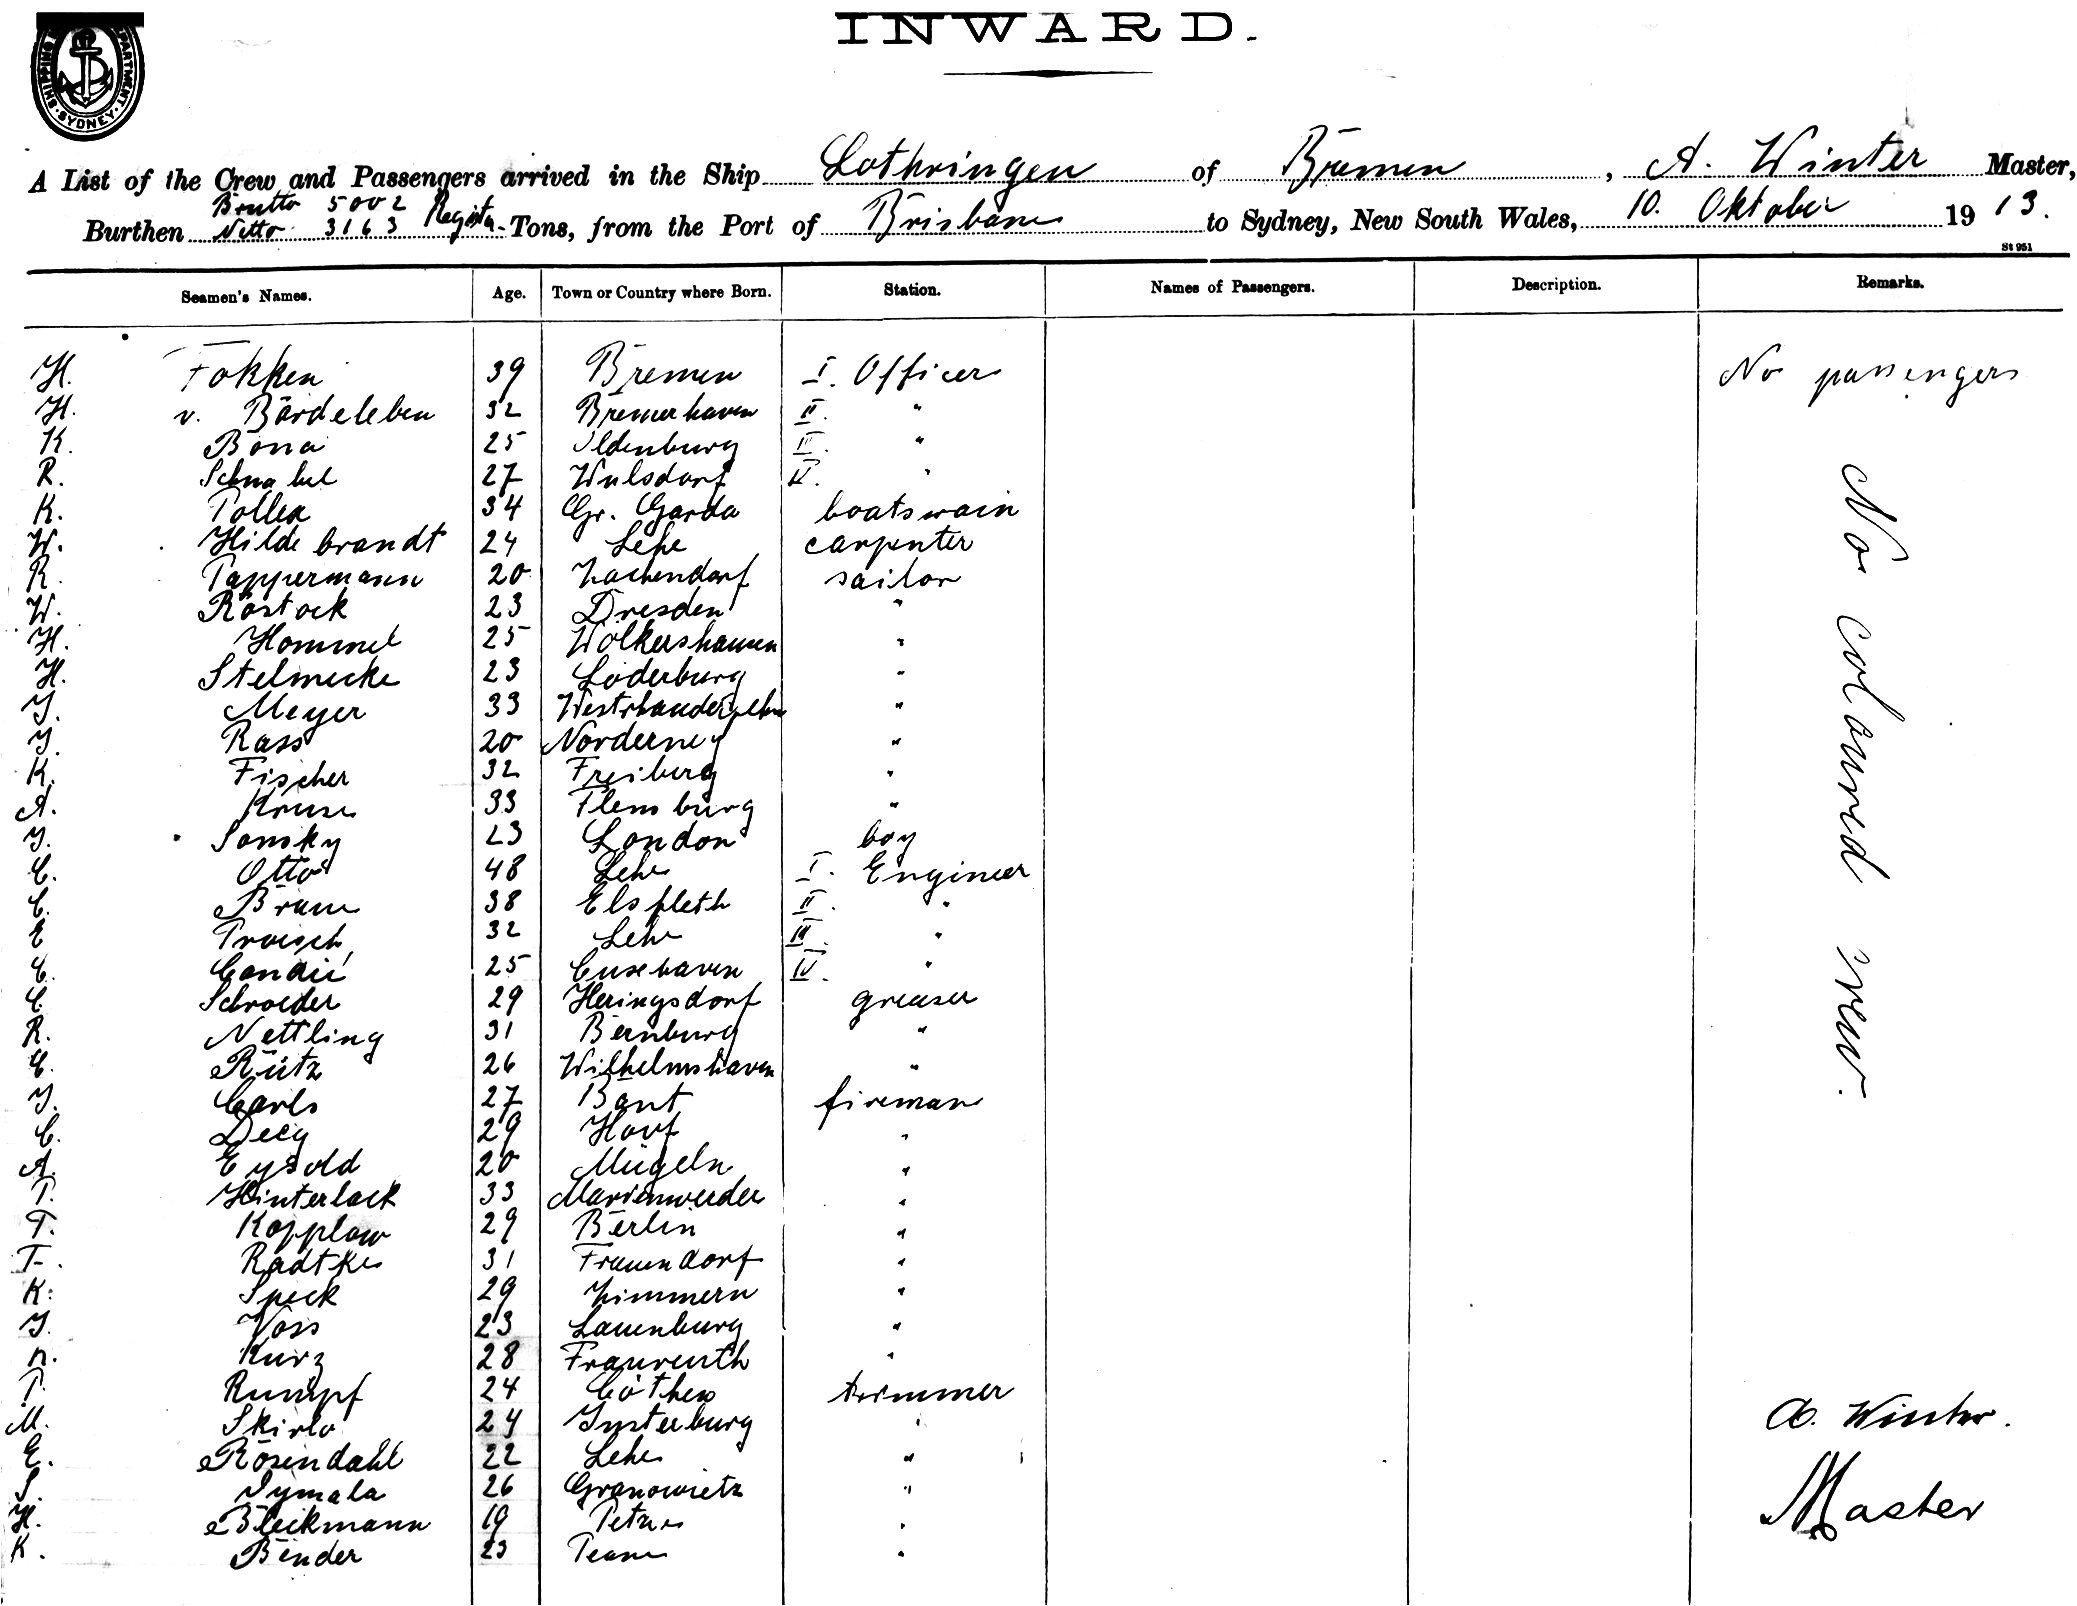 SHIPPING DEPARTMENT. SYDNEY
INWARD.
A List of the Crew and Passengers arrived in the Ship Lothringen of Bremen, A. Winter Master,
Brutto 5002
Burthen Netto 3163 Register Tons, from the Port of Brisbane to Sydney, New South Wales, 10. Oktober 1913.
St 951
Seamen's Names. Age. Town or Country where Born. Station. Names of Passengers. Description. Remarks.
H. Fokken 39 Bremen I. Officer No passengers
H. v. Bardeleben 32 Bremerhaven II. "
K. Bona 25 Oldenburg III. "
R. Schnabel 27 Wulsdorf IV. "
K. 34 Gr. Garda boatswain
W. Hildebrandt 24 Lehe carpenter
R. Pappermann 20 sailor
W. Rostock 23 Dresden "
H. Hommel 25 Wolkershausen "
H. Stelmecke 23 Loderburg "
J. Meyer 33 "
J. Rass 20 Norderney "
K. Fischer 32 Freiberg "
A. Kruse 33 Flensburg "
J. Sonsky 23 London boy
C. Otto 48 Lehe I. Engineer
C. Brune 38 Elsfleth II. "
E 32 Lehe III. "
C. 25 Cuxhaven IV. "
C. Schroeder 29 Heringsdorf greaser
R. Nettling 31 Bernburg "
C. Rütz 26 Wilhelmshaven "
J. Carls 27 Bant fireman
C. 29 "
A. Eysold 20 Mügeln "
P. Hinterlack 33 Marienwerder "
T. Kopplow 29 Berlin "
F. Radtke 31 Frauendorf "
K. Speck 29 Zimmern "
J. Voss 23 Lauenburg "
K. Kurz 28 Fraureuth "
P. Rumpf 24 Cöthen trimmer
M. Skirlo 24 Insterburg "
E. Rosendahl 22 Lehe "
S. Symala 26 Granowietz "
H. Bleckmann 19 "
K. Binder 23 "
No coloured crew.
A. Winter.
Master